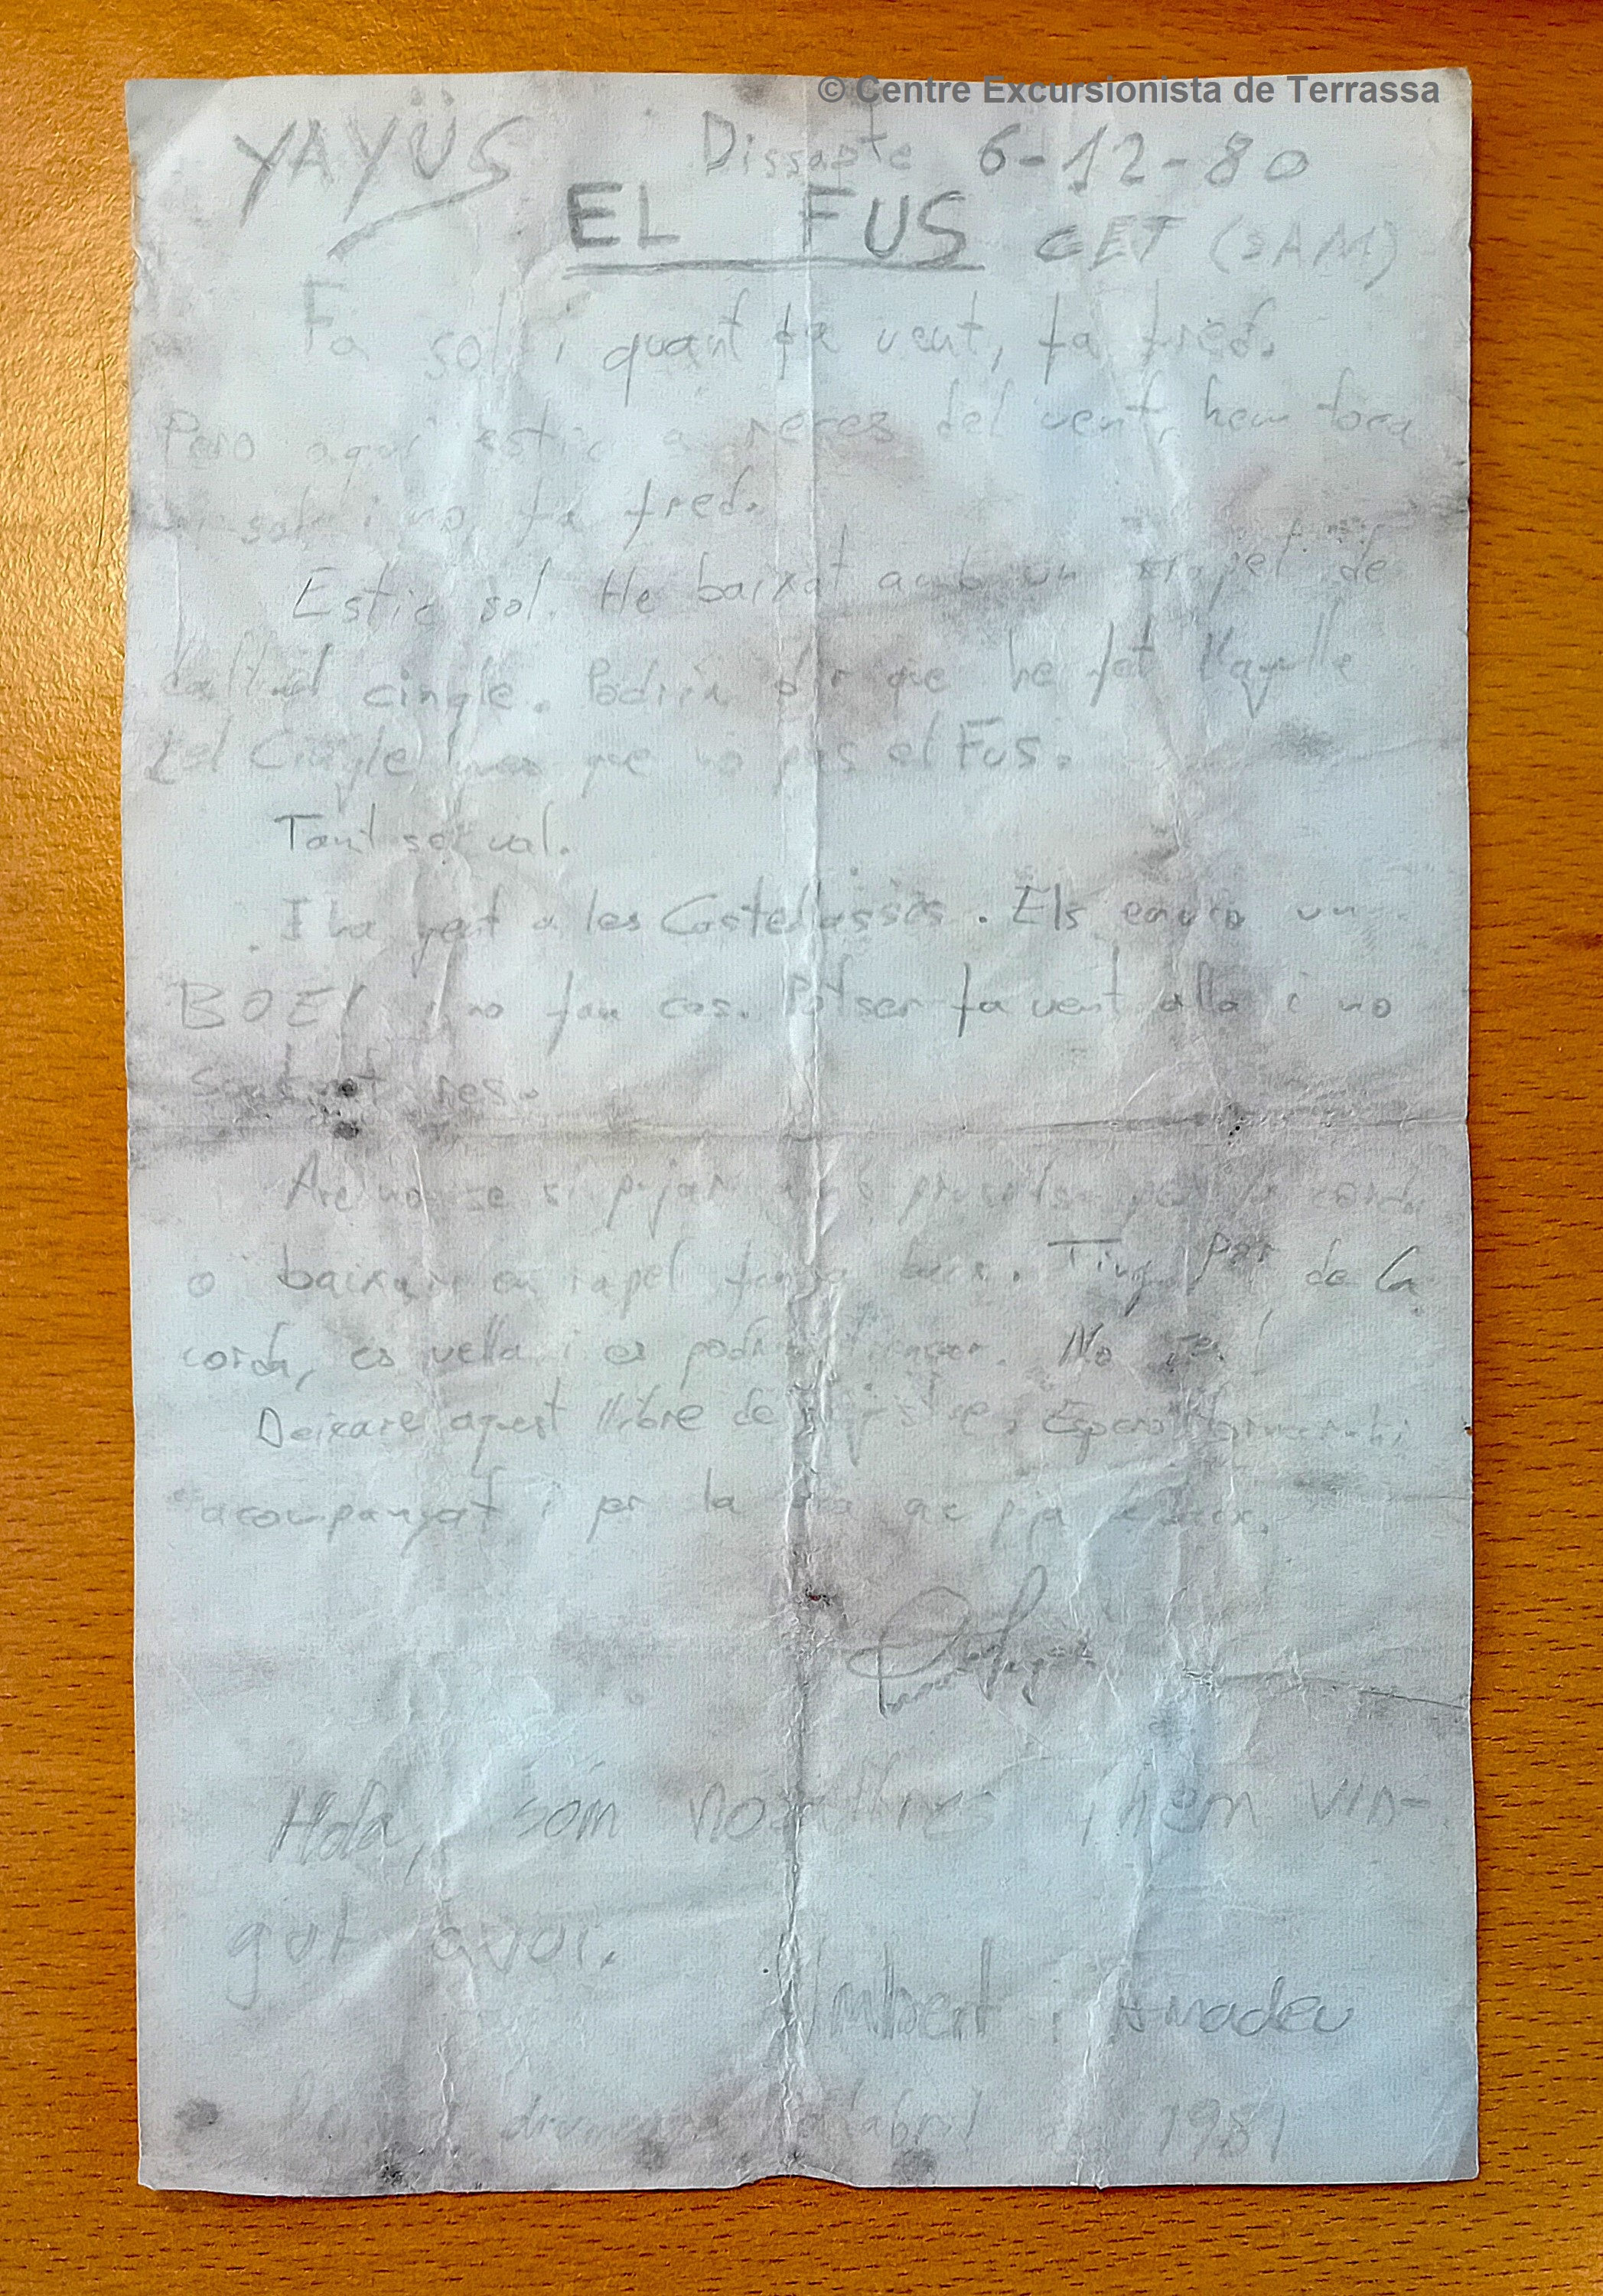 © Centre Excursionista de Terrassa
YAYÜS Dissapte 6-12-80
EL FUS CET (SAM)
Fa sol i quant fa vent, fa fred.
Pero aqui estic a reces del vent, hem toca
sol i no fa fred.
Estic sol. He baixat amb un rapel de
dalt el cingle. Podria dir que he fet l'agulla
del Cingle mes que no pas el Fus.
Tant se val.
I ha gent a les Castellasses. Els envio un
BOE! i no fan cas. Potser fa vent alla i no
sentit res.
Are no se si pujar amb prusiks per la corda
o baixar en rapel fins a baix. Tinc por de la
corda, es vella i es podria trencar. No se!
Deixare aquest llibre de registre. Espero tornar-hi
acompanyat i per la via que puja de baix.
Hola, som nosaltres i hem vin-
gut avui.
Umbert i Amadeu
diumenge d'abril 1981